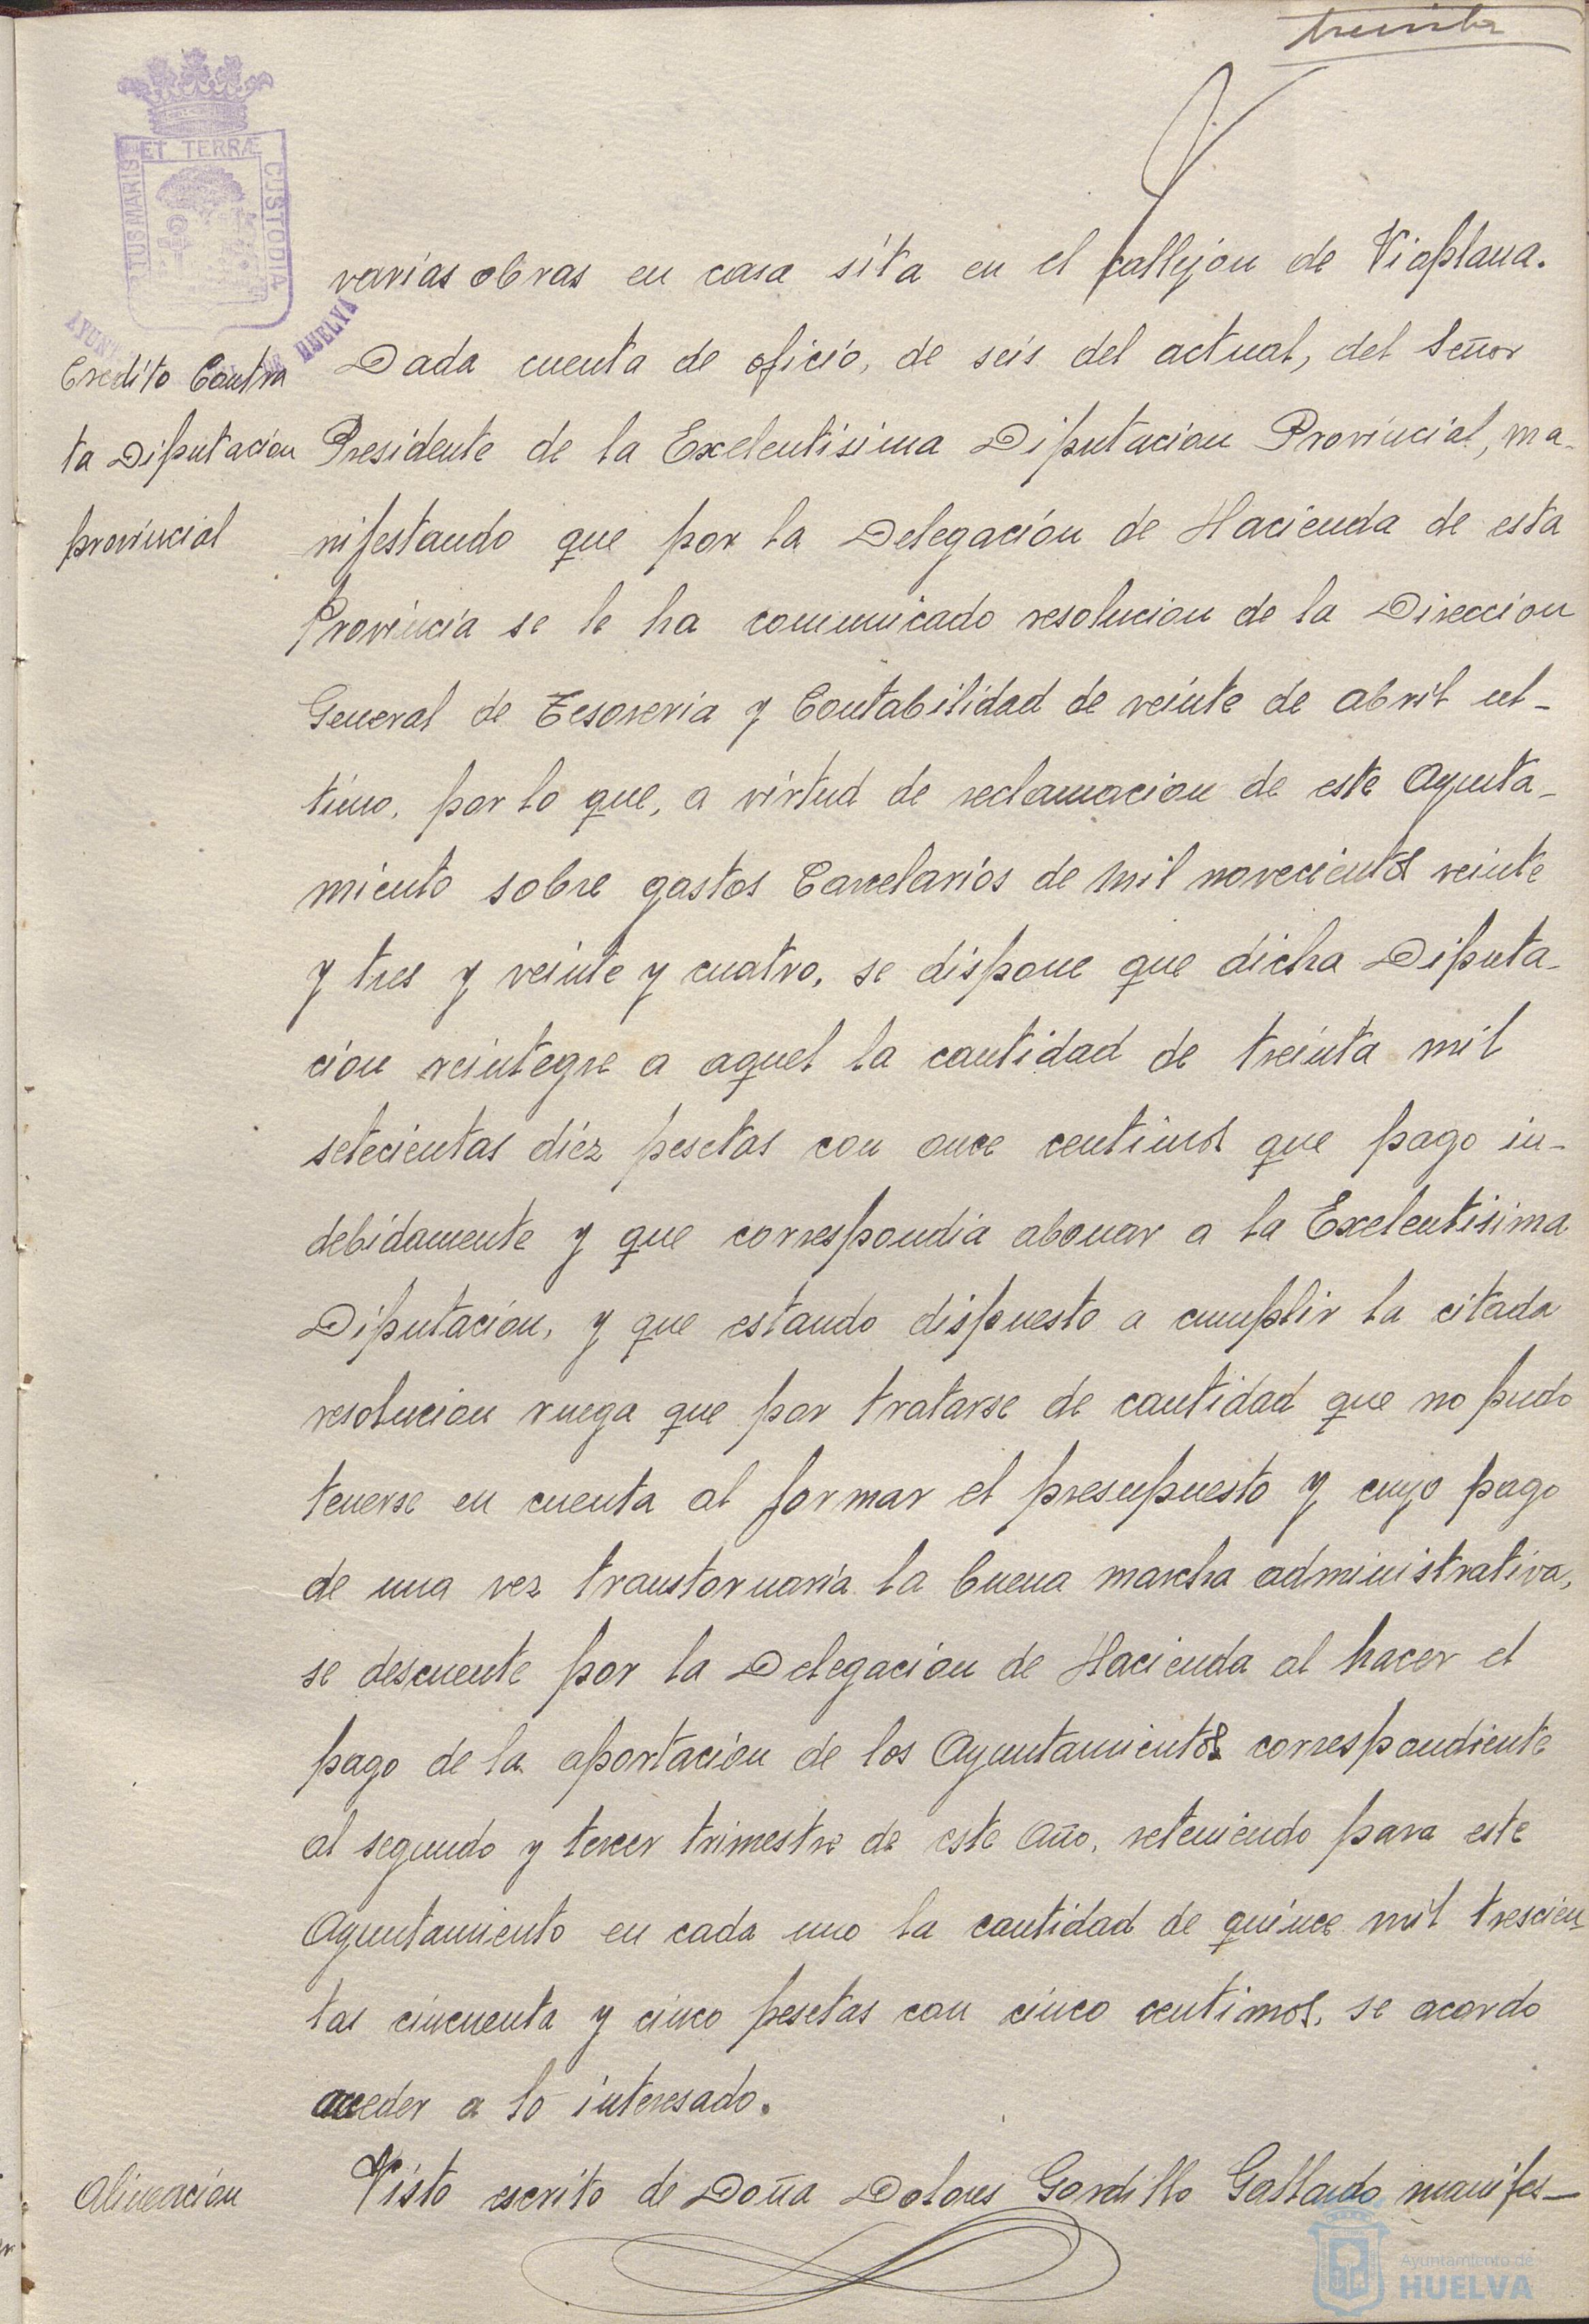 treinta
PORTUS MARIS ET TERRÆ CUSTODIA
HUELVA
varias obras en casa sita en el callejon de Vioplana.
Credito Contra
la Diputacion
provincial
Dada cuenta de oficio, de seis del actual, del Señor
Presidente de la Exelentisima Diputacion Provincial, ma-
nifestando que por la Delegación de Hacienda de esta
Provincia se le ha comunicado resolucion de la Direccion
General de Tesoreria y Contabilidad de veinte de abril ul-
timo, por lo que, a virtud de reclamacion de este Ayunta-
miento sobre gastos Carcelarios de mil novecientos veinte
y tres y veinte y cuatro, se dispone que dicha Diputa-
cion reintegre a aquel la cantidad de treinta mil
setecientas diez pesetas con once centimos que pago in-
debidamente y que correspondia abonar a la Exelentisima
Diputación, y que estando dispuesto a cumplir la citada
resolucion ruega que por tratarse de cantidad que no pudo
tenerse en cuenta al formar el presupuesto y cuyo pago
de una vez transtornaria la buena marcha administrativa,
se descuente por la Delegación de Hacienda al hacer el
pago de la aportación de los Ayuntamientos correspondiente
al segundo y tercer trimestre de este año, reteniendo para este
Ayuntamiento en cada uno la cantidad de quince mil trescien-
tas cincuenta y cinco pesetas con cinco centimos, se acordo
acceder a lo interesado.
Alineación
Visto escrito de Doña Dolores Gordillo Gallardo manifes-
Ayuntamiento de
HUELVA